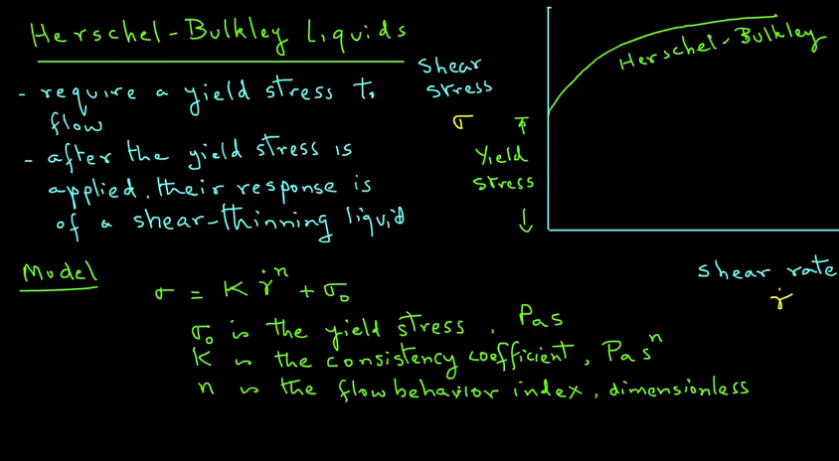 Herschel-Bulkley Liquids
- require a yield stress to
flow
- after the yield stress is
applied, their response is
of a shear-thinning liquid
Shear
stress
σ
Yield
stress
Herschel-Bulkley
shear rate
γ̇
Model
σ = K γ̇ⁿ + σ₀
σ₀ is the yield stress, Pas
K is the consistency coefficient, Pasⁿ
n is the flow behavior index, dimensionless